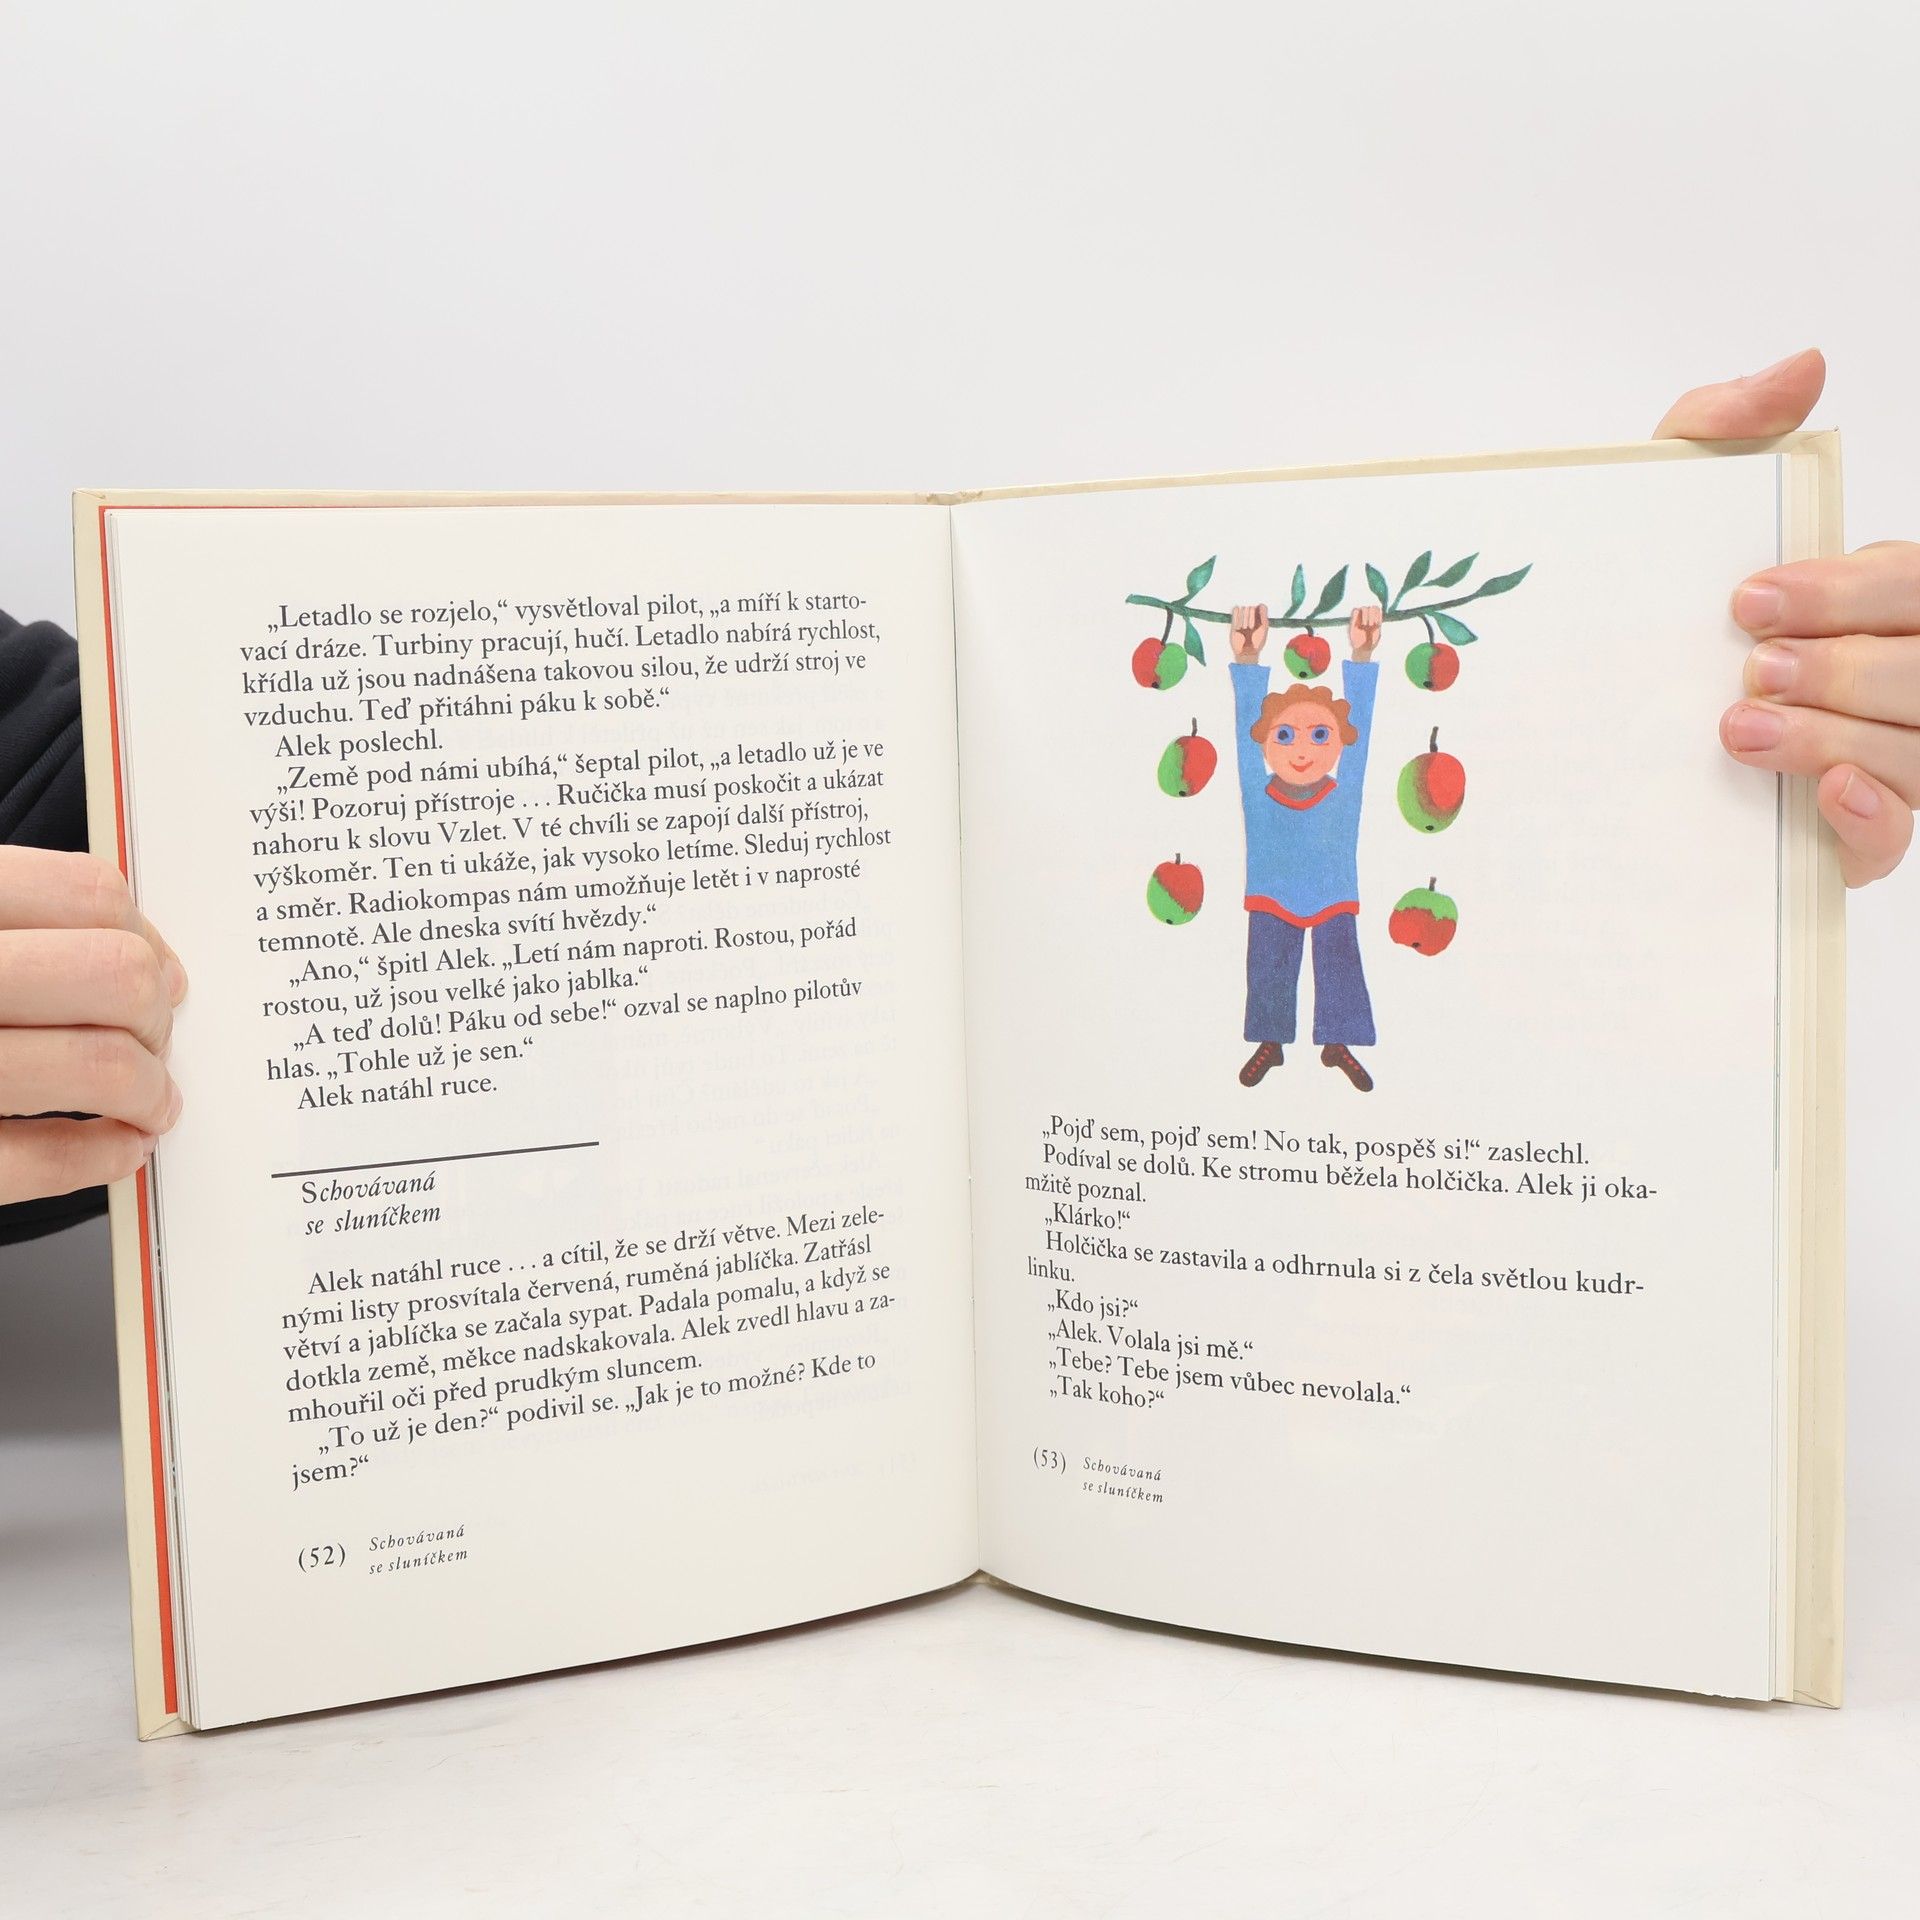 „Letadlo se rozjelo,“ vysvětloval pilot, „a míří k starto-
vací dráze. Turbiny pracují, hučí. Letadlo nabírá rychlost,
křídla už jsou nadnášena takovou silou, že udrží stroj ve
vzduchu. Teď přitáhni páku k sobě.“
Alek poslechl.
„Země pod námi ubíhá,“ šeptal pilot, „a letadlo už je ve
výši! Pozoruj přístroje ... Ručička musí poskočit a ukázat
nahoru k slovu Vzlet. V té chvíli se zapojí další přístroj,
výškoměr. Ten ti ukáže, jak vysoko letíme. Sleduj rychlost
a směr. Radiokompas nám umožňuje letět i v naprosté
temnotě. Ale dneska svítí hvězdy.“
„Ano,“ špitl Alek. „Letí nám naproti. Rostou, pořád
rostou, už jsou velké jako jablka.“
„A teď dolů! Páku od sebe!“ ozval se naplno pilotův
hlas. „Tohle už je sen.“
Alek natáhl ruce.
Schovávaná
se sluníčkem
Alek natáhl ruce ... a cítil, že se drží větve. Mezi zele-
nými listy prosvítala červená, ruměná jablíčka. Zatřásl
větví a jablíčka se začala sypat. Padala pomalu, a když se
dotkla země, měkce nadskakovala. Alek zvedl hlavu a za-
mhouřil oči před prudkým sluncem.
„To už je den?“ podivil se. „Jak je to možné? Kde to
jsem?“
(52) Schovávaná
se sluníčkem
„Pojď sem, pojď sem! No tak, pospěš si!“ zaslechl.
Podíval se dolů. Ke stromu běžela holčička. Alek ji oka-
mžitě poznal.
„Klárko!“
Holčička se zastavila a odhrnula si z čela světlou kudr-
linku.
„Kdo jsi?“
„Alek. Volala jsi mě.“
„Tebe? Tebe jsem vůbec nevolala.“
„Tak koho?“
(53) Schovávaná
se sluníčkem